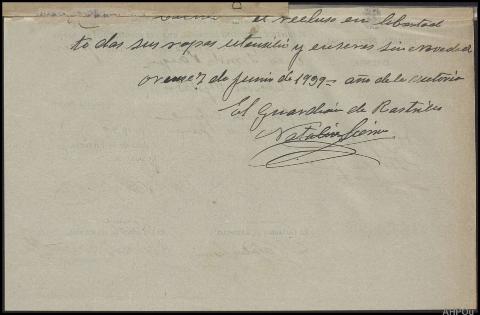 el recluso en libertad
todas sus ropas utensilio y enseres sin novedad
Orense 7 de Junio de 1939 = año de la victoria
El Guardian de Rastrillo
AHPOu